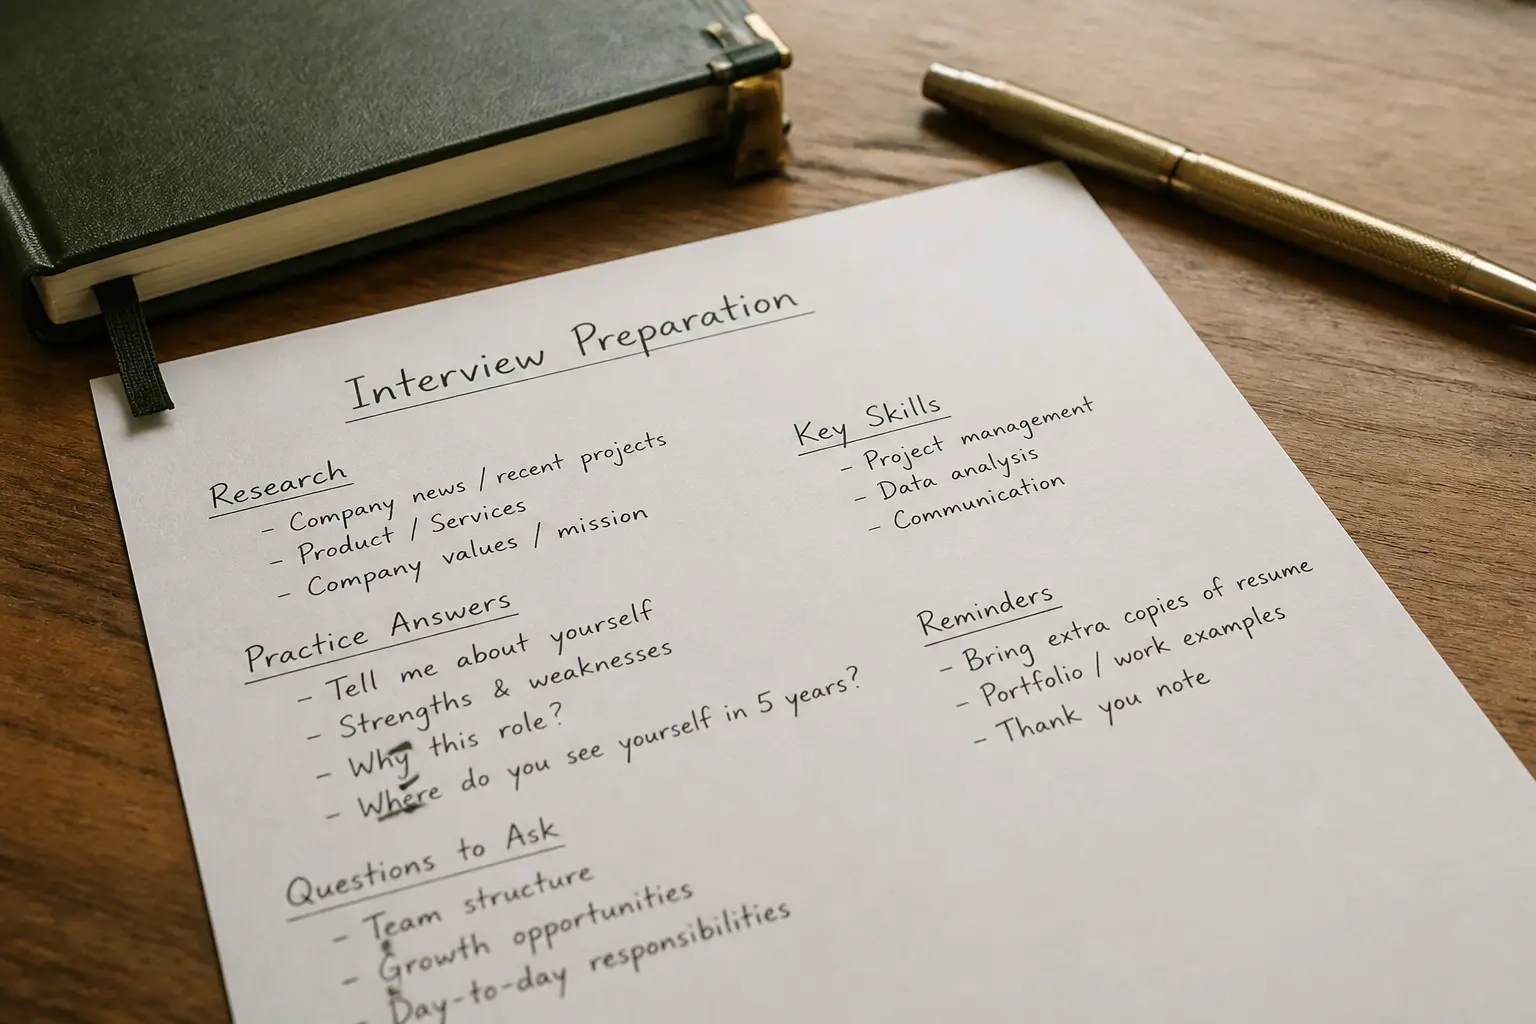 Interview Preparation
Research
- Company news / recent projects
- Product / Services
- Company values / mission
Practice Answers
- Tell me about yourself
- Strengths & weaknesses
- Why this role?
- Where do you see yourself in 5 years?
Questions to Ask
- Team structure
- Growth opportunities
- Day-to-day responsibilities
Key Skills
- Project management
- Data analysis
- Communication
Reminders
- Bring extra copies of resume
- Portfolio / work examples
- Thank you note